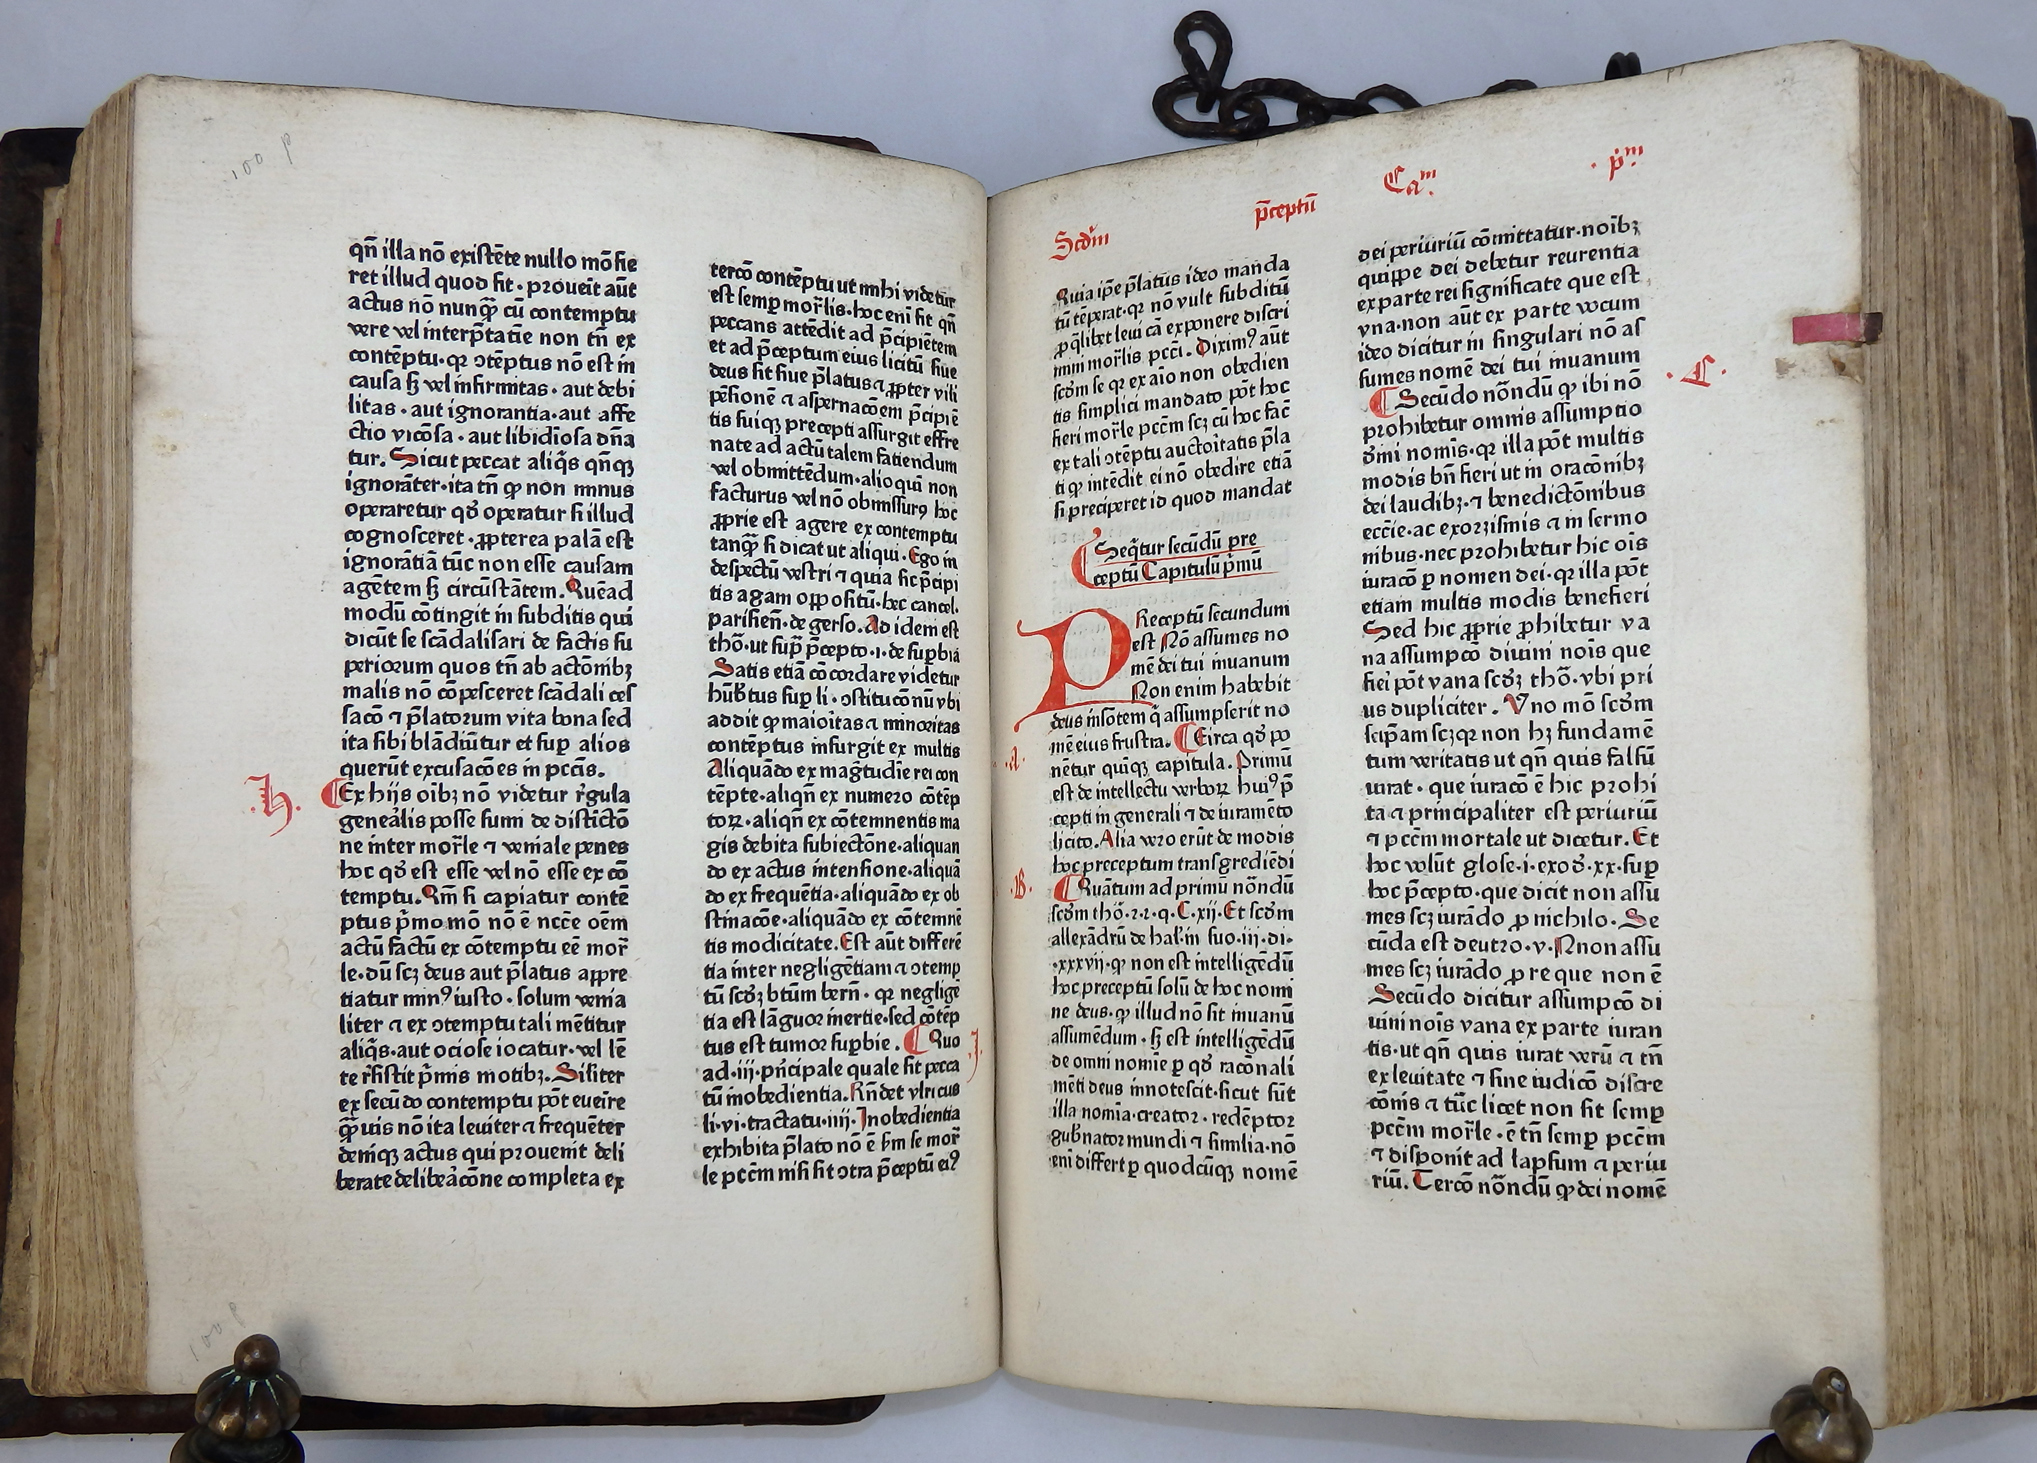 100 p
qñ illa nō existēte nullo mō fie
ret illud quod fit · prouēit aūt
actus nō nunq̄ cū contemptu
vere vel interp̄tatīe non tñ ex
contēptu · qr ɔtēptus nō est in
causa sȝ vel infirmitas · aut debi
litas · aut ignorantia · aut affe
ctio vicōsa · aut libidiosa dña
tur. Sicut peccat aliq̄s qñqȝ
ignorāter · ita tñ ꝙ non minus
operaretur qđ operatur si illud
cognosceret · ꝓpterea palā est
ignorātiā tūc non esse causam
agētem sȝ circūstātem. Quēad
modū cōtingit in subditis qui
dicūt se scādalisari de factis su
periorum quos tñ ab actōnibȝ
malis nō cōpesceret scādali ces
sacō ⁊ p̄latorum vita bona sed
ita sibi blādiūtur et suꝑ alios
querūt excusacōes in pccis.
h.
Ex hijs oībȝ nō videtur r̄gula
geneālis posse sumi de distictō
ne inter mor̄le ⁊ veniale penes
hoc qđ est esse vel nō esse ex cō
temptu. Qm̄ si capiatur contē
ptus p̄mo mō nō ē nccē oēm
actū factū ex cōtemptu eē mor̄
le · dū scȝ deus aut p̄latus appre
tiatur minꝰ iusto · solum venia
liter ⁊ ex ɔtemptu tali mētitur
aliq̄s · aut ociose iocatur · vel lē
te r̄sistit p̄mis motibȝ. Siliter
ex secūdo contemptu pōt eueīre
q̄uis nō ita leuiter ⁊ frequēter
deniqȝ actus qui prouenit deli
berate delibeācōne completa ex
tercō contēptu ut mihi videtur
est semꝑ mor̄lis · hoc eni fit qñ
peccans attēdit ad p̄cipiētem
et ad p̄ceptum eius licitū siue
deus sit siue p̄latus ⁊ ꝓpter vili
pēsionē ⁊ aspernacōem p̄cipiē
tis suiqȝ precepti assurgit effre
nate ad actū talem fatiendum
vel obmittēdum · alioquī non
facturus vel nō obmissurꝰ hoc
ꝓprie est agere ex contemptu
tanq̄ si dicat ut aliqui · Ego in
despectū vestri ⁊ quia sic p̄cipi
tis agam oppositū · hec cancel.
parisieñ · de gerso. Ad idem est
thō · ut sup̄ p̄cepto · i · de suꝑbiā
Satis etiā cōcordare videtur
hūbtus suꝑ li · ɔstitucōnū vbi
addit ꝙ maioītas ⁊ minoritas
contēptus insurgit ex multis
Aliquādo ex magtudīe rei con
tēpte · aliqñ ex numero cōtēp
toꝝ · aliqñ ex cōtemnentis ma
gis debita subiectōne · aliquan
do ex actus intensione · aliquā
do ex frequētia · aliquādo ex ob
stinacōe · aliquādo ex cōtemnē
tis modicitate. Est aūt differē
tia inter negligētiam ⁊ ɔtemp
tū scđȝ btūm berñ · qr neglige
tia est lāguor inertie · sed cōtēp
tus est tumor suꝑbie. Quo
J
ad · iij · prīcipale quale sit pecca
tū inobedientia. Rñdet vlricus
li · vi · tractatu · iiij · Inobedientia
exhibita p̄lato nō ē sm̄ se mor̄
le pccm nisi sit ɔtra p̄ceptū eiꝰ
100 p
Scđm p̄ceptū Caᵐ. · pᵐ.
Quia ip̄e p̄latus ideo manda
tū tēperat · qr nō vult subditū
ꝓ qlibet leui cā exponere discri
mini mor̄lis pcci. Diximꝰ aūt
scđm se qr ex aīo non obedien
tis simplici mandato pōt hoc
fieri mor̄le pccm scȝ cū hoc fac̄
ex tali ɔtēptu auctoītatis p̄la
ti ꝙ intēdit ei nō obedire etiā
si preciperet id quod mandat
Seq̄tur secūdū pre
ceptū Capitulū p̄mū
PReceptū secundum
est Nō assumes no
mē dei tui inuanum
Non enim habebit
deus insōtem q̄ assumpserit no
mē eius frustra. Circa qđ po
A.
nētur quiqȝ capitula. Primū
est de intellectu verboꝝ huiꝰ p̄
cepti in generali ⁊ de iuramēto
licito. Alia vero erūt de modis
hoc preceptum transgrediēdi
B.
Quātum ad primū nōndū
scđm thō · 2 · 2 · q · C · xij · Et scđm
allexādrū de hal · in suo · iij · di ·
· xxxvij · ꝙ non est intelligēdū
hoc preceptū solū de hoc nomi
ne deus · ꝙ illud nō sit inuanū
assumēdum · sȝ est intelligēdū
de omni nomīe ꝑ qđ racōnali
mēti deus innotescit · sicut sūt
illa nomīa · creator · redēptor
gubnator mundi ⁊ similia · nō
eni differt ꝑ quodcūqȝ nomē
dei periuriū cōmittatur · noībȝ
quippe dei debetur reurentia
ex parte rei significate que est
vna · non aūt ex parte vocum
ideo dicitur in singulari nō as
sumes nomē dei tui inuanum
C.
Secūdo nōndū ꝙ ibi nō
prohibetur omnis assumptio
dīni nomīs · qr illa pōt multis
modis bñ fieri ut in oracōnibȝ
dei laudibȝ · ⁊ benedictōnibus
eccīe · ac exorzismis ⁊ in sermo
nibus · nec prohibetur hic oīs
iuracō ꝑ nomen dei · qr illa pōt
etiam multis modis benefieri
Sed hic ꝓprie ꝓhibetur va
na assumpcō diuini noīs que
fieī pōt vana scđȝ thō · vbi pri
us dupliciter. Vno mō scđm
seip̄am scȝ qr non hȝ fundamē
tum veritatis ut qñ quis falsū
iurat · que iuracō ē hic prohi
ta ⁊ principaliter est periuriū
⁊ pccm mortale ut dicetur. Et
hoc volūt glose · i · exođ · xx · suꝑ
hoc p̄cepto · que dicit non assu
mes scȝ iurādo ꝓ nichilo · Se
cūda est deutro · v · Nnon assu
mes scȝ iurādo ꝓ re que non ē
Secūdo dicitur assumpcō di
uini noīs vana ex parte iuran
tis · ut qñ quis iurat verū ⁊ tñ
ex leuitate ⁊ sine iudicō discre
cōnis ⁊ tūc licet non sit semꝑ
pccm mor̄le · ē tñ semꝑ pccm
⁊ disponit ad lapsum ⁊ periu
riū. Tercō nōndū ꝙ dei nomē